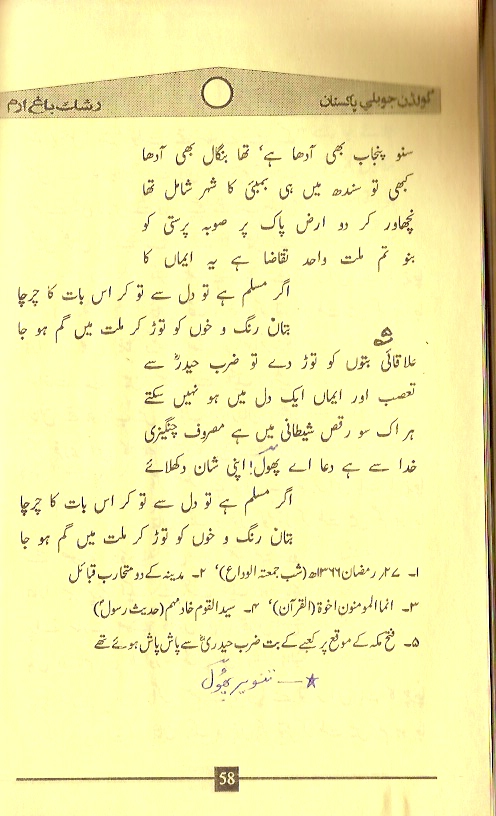 گولڈن جوبلی پاکستان
رشک باغ ارم
سنو پنجاب بھی آدھا ہے، تھا بنگال بھی آدھا
کبھی تو سندھ میں ہی بمبئی کا شہر شامل تھا
نچھاور کر دو ارض پاک پر صوبہ پرستی کو
بنو تم ملت واحد تقاضا ہے یہ ایماں کا
اگر مسلم ہے تو دل سے تو کر اس بات کا چرچا
بتان رنگ و خوں کو توڑ کر ملت میں گم ہو جا
علاقائی بتوں کو توڑ دے تو ضرب حیدرؓ سے
تعصب اور ایماں ایک دل میں ہو نہیں سکتے
ہر اک سو رقص شیطانی میں ہے مصروف چنگیزی
خدا سے ہے دعا اے پھولؔ! اپنی شان دکھلائے
اگر مسلم ہے تو دل سے تو کر اس بات کا چرچا
بتان رنگ و خوں کو توڑ کر ملت میں گم ہو جا
۱۔ ۲۷؍ رمضان ۱۳۶۶ھ (شب جمعتہ الوداع)، ۲۔ مدینہ کے دو متحارب قبائل
۳۔ انما المومنون اخوۃ (القرآن)، ۴۔ سید القوم خادمہم (حدیث رسولؐ)
۵۔ فتح مکہ کے موقع پر کعبے کے بت ضرب حیدریؓ سے پاش پاش ہوئے تھے
تنویر پھولؔ
58